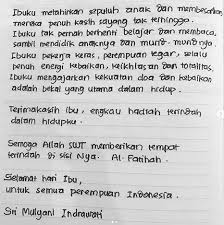 Ibuku melahirkan sepuluh anak dan membesarkan
mereka penuh kasih sayang tak terhingga.
Ibuku tak pernah berhenti belajar dan membaca,
sambil mendidik anaknya dan murid-muridnya.
Ibuku pekerja keras, perempuan tegar, selalu
penuh energi kebaikan, keikhlasan dan totalitas.
Ibuku mengajarkan kekuatan doa dan kebaikan
adalah bekal yang utama dalam hidup.
Terimakasih Ibu, engkau hadiah terindah
dalam hidupku.
Semoga Allah SWT memberikan tempat
terindah di sisi Nya. Al Fatihah.
Selamat hari Ibu,
untuk semua perempuan Indonesia.
Sri Mulyani Indrawati